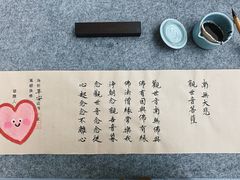 南無大悲
觀世音菩薩
觀世音南無佛與
佛有因與佛有緣
佛法僧緣常樂我
淨朝念觀音暮
念觀世音念念從
心起念念不離心